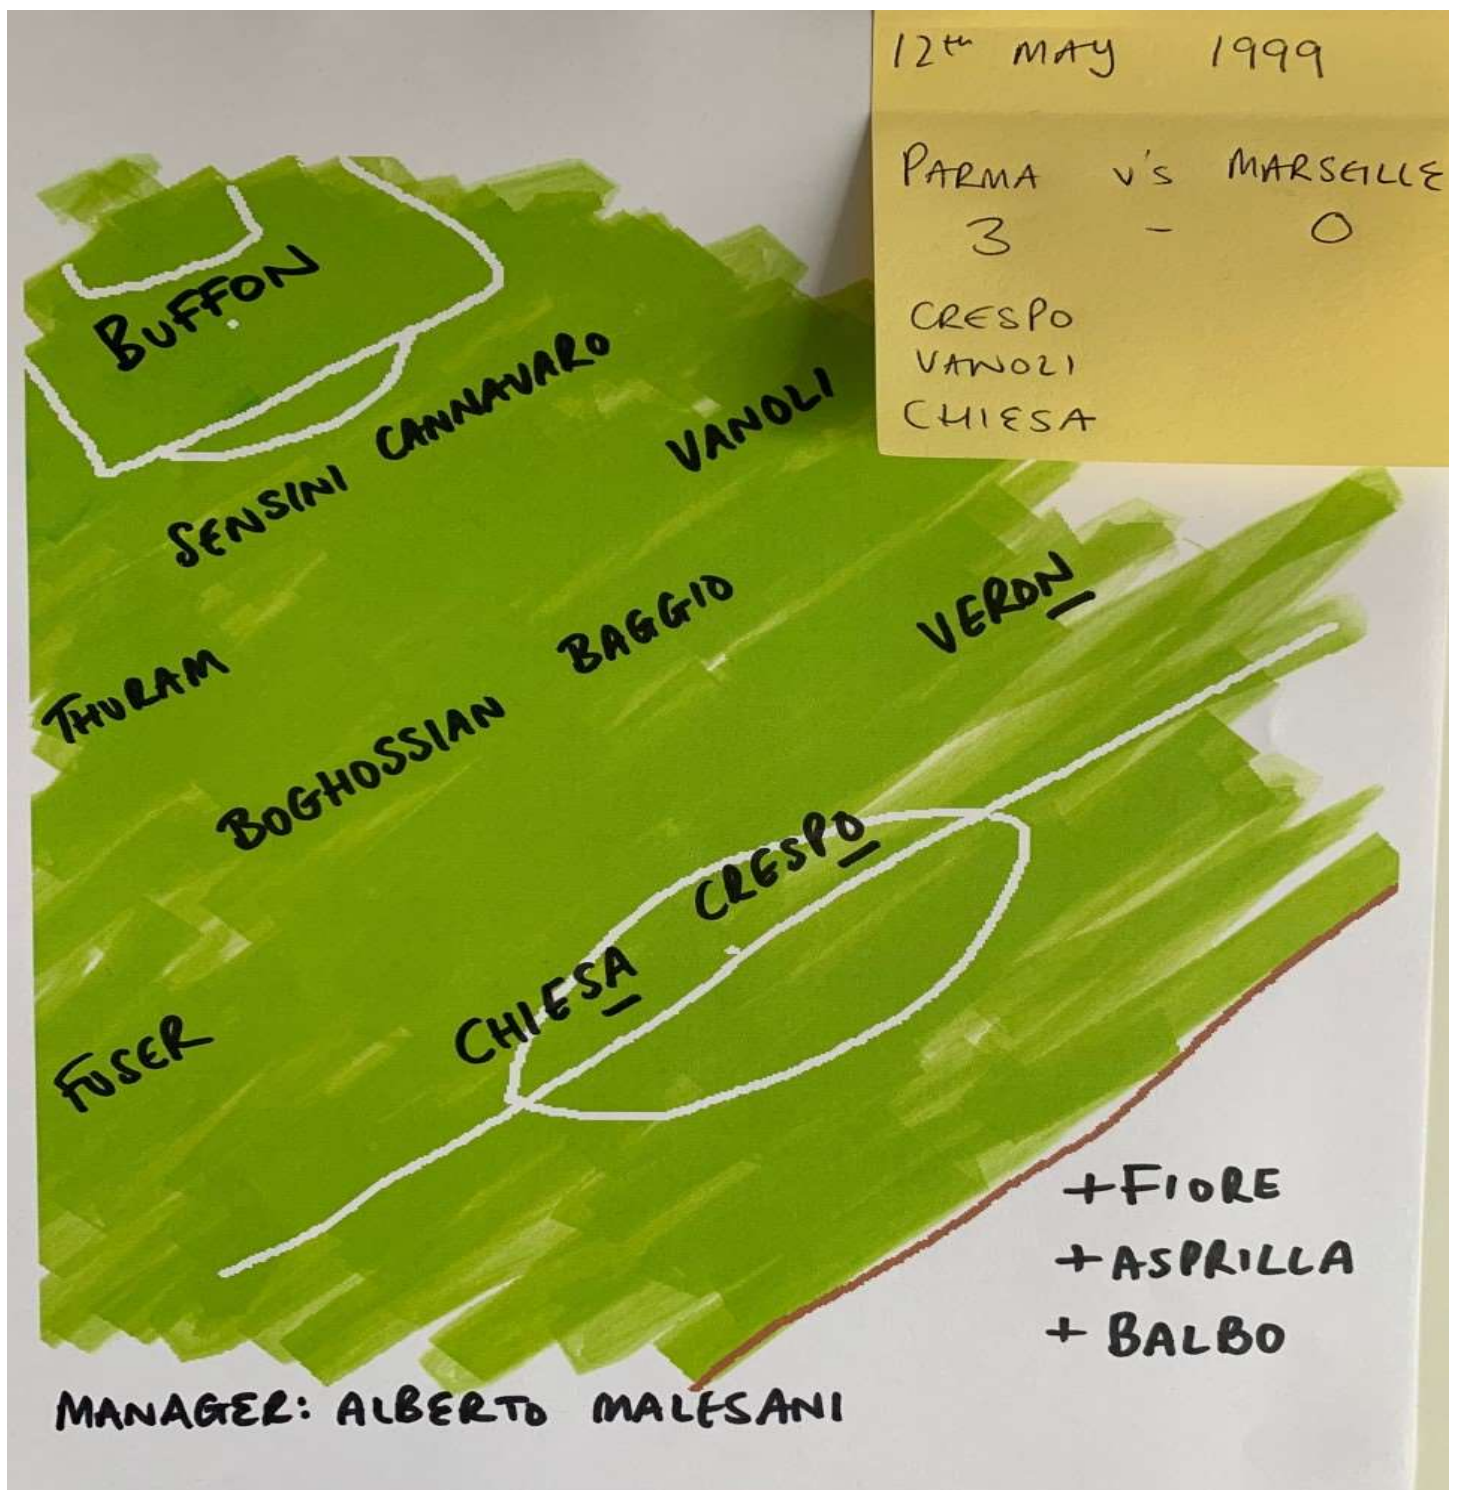 12th MAY 1999
PARMA v's MARSEILLE
3 - 0
CRESPO
VANOLI
CHIESA
BUFFON
SENSINI CANNAVARO
VANOLI
THURAM
BOGHOSSIAN
BAGGIO
VERON
FUSER
CHIESA
CRESPO
+ FIORE
+ ASPRILLA
+ BALBO
MANAGER: ALBERTO MALESANI